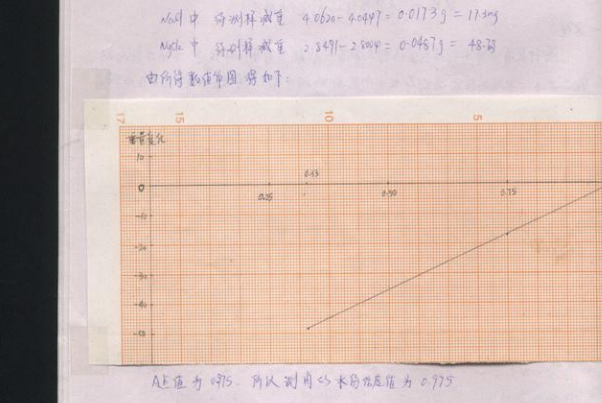 NaCl 中 待测样减重 4.0620-4.0447=0.0173g=17.3mg
MgCl₂ 中 待测样减重 2.8491-2.8004=0.0487g= 48.7g
由所得数值作图 得如下:
17 15 10 5
重量变化
10
0.33
0
0.25 0.50 0.75
-10
-20
-30
-40
-50
A点值为 0.975. 所以测得 水分活度值为 0.975